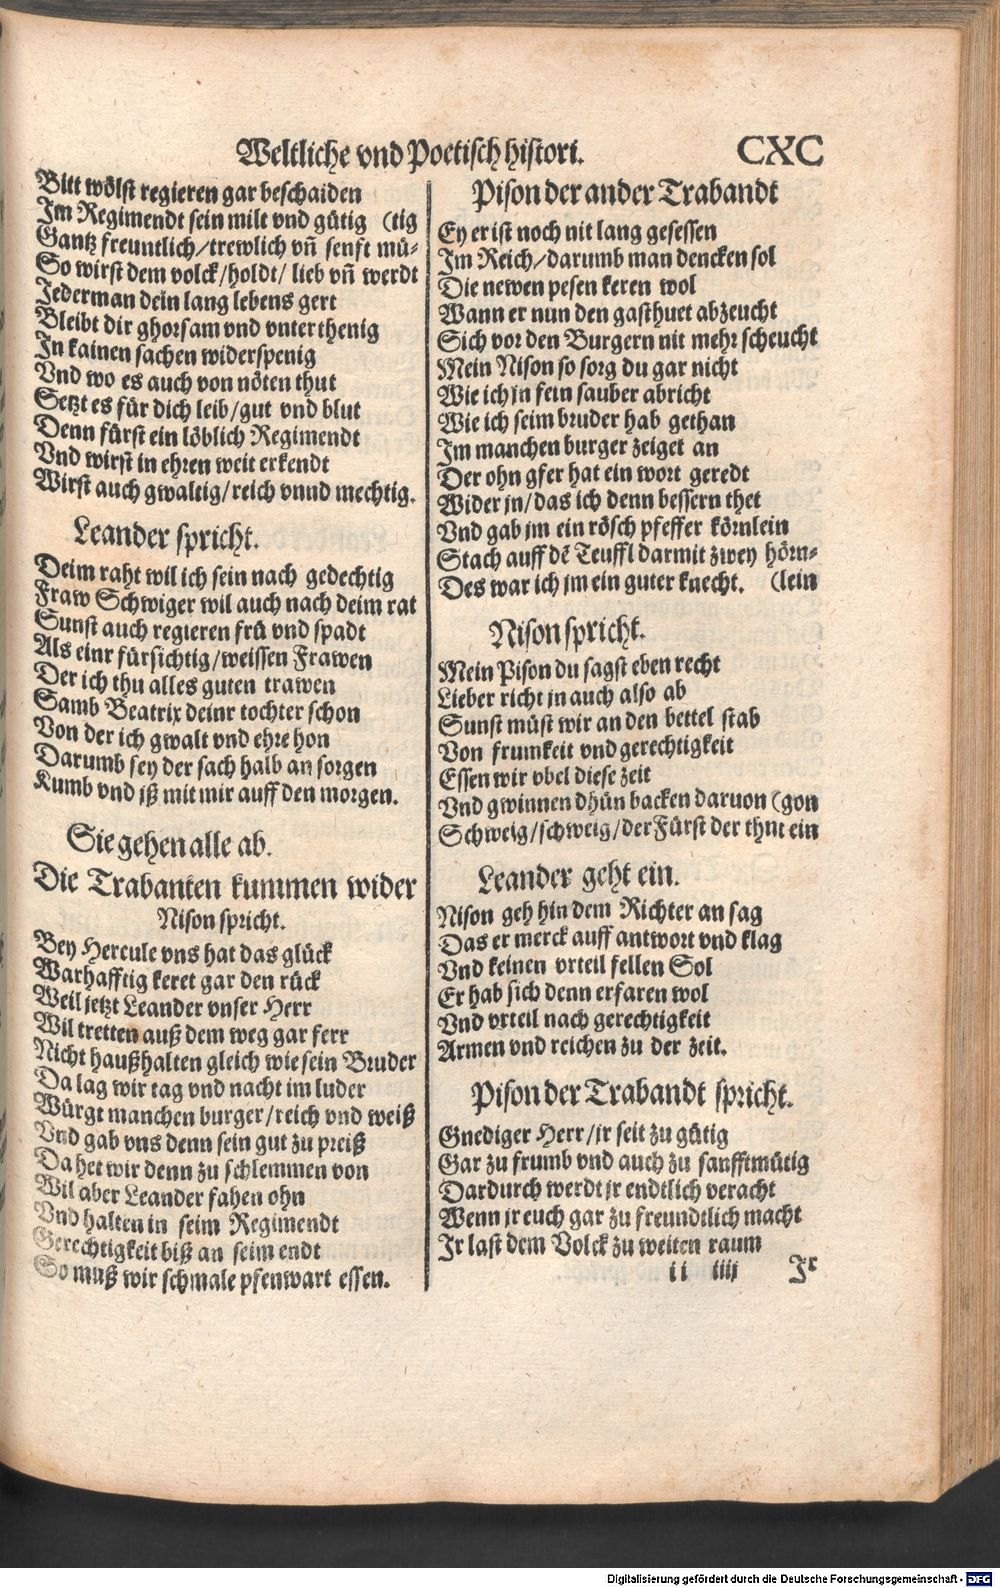 Weltliche vnd Poetisch histori. CXC
Bitt wölst regieren gar beschaiden
Im Regimendt sein milt vnd gütig (tig
Gantz freuntlich/trewlich vñ senft mü-
So wirst dem volck/holdt/ lieb vñ werdt
Jederman dein lang lebens gert
Bleibt dir ghorsam vnd vnterthenig
In kainen sachen widerspenig
Vnd wo es auch von nöten thut
Setzt es für dich leib/gut vnd blut
Denn fürst ein löblich Regimendt
Vnd wirst in ehren weit erkendt
Wirst auch gwaltig/reich vnnd mechtig.
Leander spricht.
Deim raht wil ich sein nach gedechtig
Fraw Schwiger wil auch nach deim rat
Sunst auch regieren frü vnd spadt
Als einr fürsichtig/weissen Frawen
Der ich thu alles guten trawen
Samb Beatrix deinr tochter schon
Von der ich gwalt vnd ehre hon
Darumb sey der sach halb an sorgen
Kumb vnd iß mit mir auff den morgen.
Sie gehen alle ab.
Die Trabanten kummen wider
Nison spricht.
Bey Hercule vns hat das glück
Warhafftig keret gar den rück
Weil jetzt Leander vnser Herr
Wil tretten auß dem weg gar ferr
Nicht haußhalten gleich wie sein Bruder
Da lag wir tag vnd nacht im luder
Würgt manchen burger/reich vnd weiß
Vnd gab vns denn sein gut zu preiß
Da het wir denn zu schlemmen von
Wil aber Leander fahen ohn
Vnd halten in seim Regimendt
Gerechtigkeit biß an seim endt
So muß wir schmale pfenwart essen.
Pison der ander Trabandt
Ey er ist noch nit lang gesessen
Im Reich/darumb man dencken sol
Die newen pesen keren wol
Wann er nun den gasthuet abzeucht
Sich vor den Burgern nit mehr scheucht
Mein Nison so sorg du gar nicht
Wie ich jn fein sauber abricht
Wie ich seim bruder hab gethan
Im manchen burger zeiget an
Der ohn gfer hat ein wort geredt
Wider jn/das ich denn bessern thet
Vnd gab jm ein rösch pfeffer körnlein
Stach auff dẽ Teuffl darmit zwey hörn-
Des war ich jm ein guter knecht. (lein
Nison spricht.
Mein Pison du sagst eben recht
Lieber richt jn auch also ab
Sunst müst wir an den bettel stab
Von frumkeit vnd gerechtigkeit
Essen wir vbel diese zeit
Vnd gwinnen dhün backen daruon (gon
Schweig/schweig/der Fürst der thut ein
Leander geht ein.
Nison geh hin dem Richter an sag
Das er merck auff antwort vnd klag
Vnd keinen vrteil fellen Sol
Er hab sich denn erfaren wol
Vnd vrteil nach gerechtigkeit
Armen vnd reichen zu der zeit.
Pison der Trabandt spricht.
Gnediger Herr/jr seit zu gütig
Gar zu frumb vnd auch zu sanfftmütig
Dardurch werdt jr endtlich veracht
Wenn jr euch gar zu freundtlich macht
Ir last dem Volck zu weiten raum
ii iiij Ir
Digitalisierung gefördert durch die Deutsche Forschungsgemeinschaft - DFG